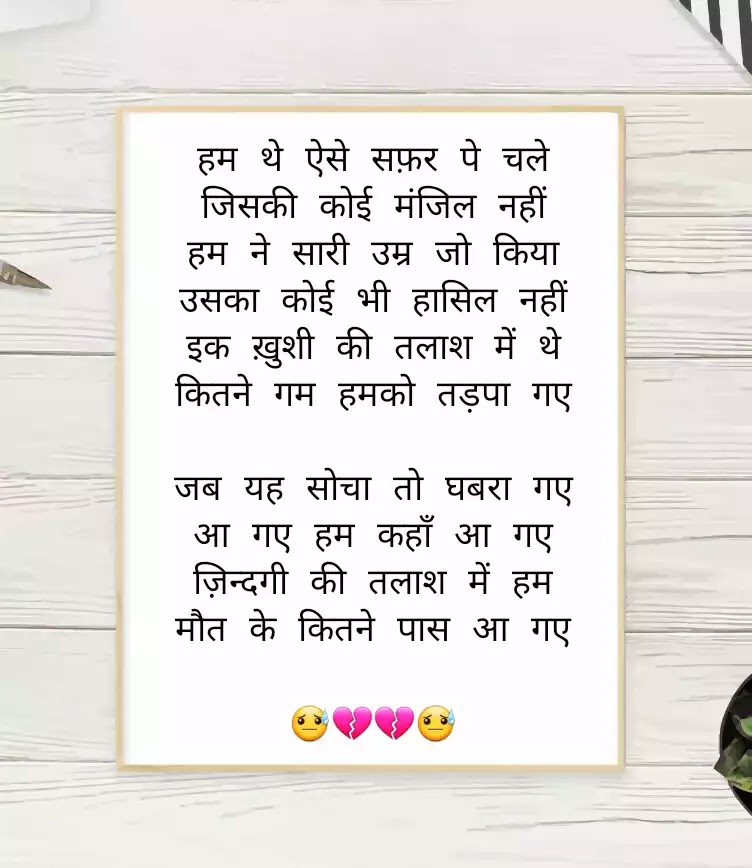 हम थे ऐसे सफ़र पे चले
जिसकी कोई मंजिल नहीं
हम ने सारी उम्र जो किया
उसका कोई भी हासिल नहीं
इक ख़ुशी की तलाश में थे
कितने गम हमको तड़पा गए
जब यह सोचा तो घबरा गए
आ गए हम कहाँ आ गए
ज़िन्दगी की तलाश में हम
मौत के कितने पास आ गए
😓💔💔😓